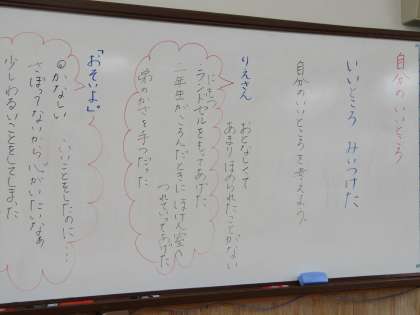 自分のいいところ
いいところ みいつけた
自分のいいところを考えよう。
りえさん
おとなしくて
あまりほめられたことがない
にもつ
ランドセルをもってあげた
一年生がころんだときにほけん室へ
つれていってあげた
のかさを手つだった
「おそいよ」
かなしい いいことをしたのに…
さぼってないから 心がいたいなぁ
少しわるいことをしてしまった